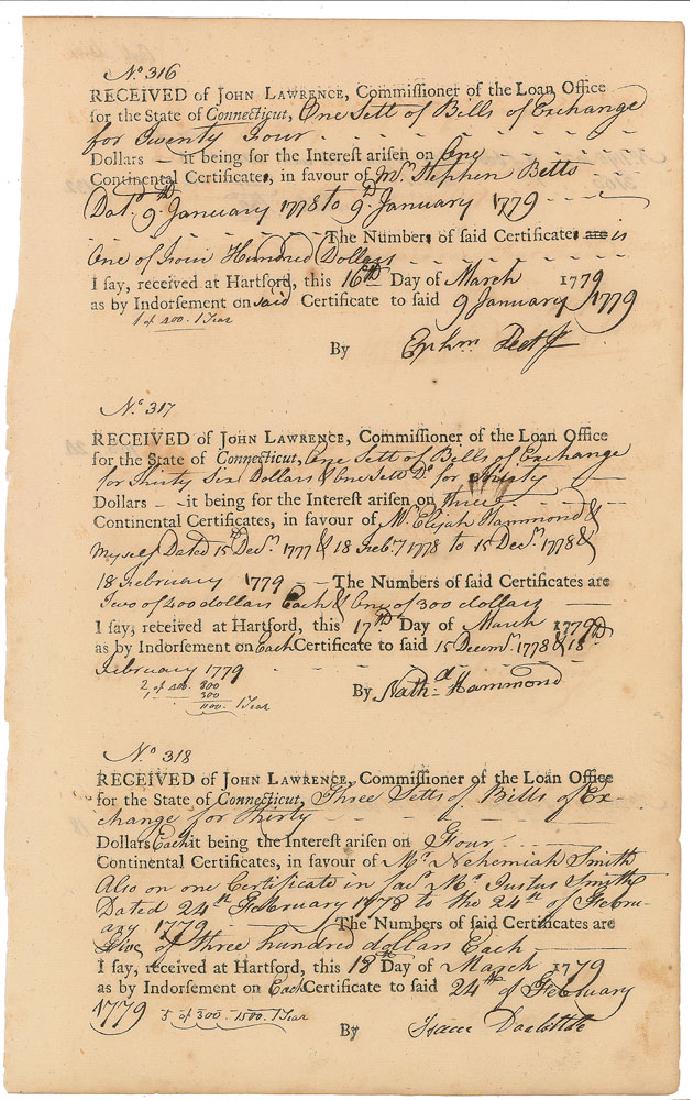 No. 316
RECEIVED of JOHN LAWRENCE, Commissioner of the Loan Office
for the State of Connecticut, One Sett of Bills of Exchange
for Twenty Four
Dollars - it being for the Interest arisen on One
Continental Certificates, in favour of Mr. Stephen Betts
Dat. 9th January 1778 to 9d. January 1779
The Numbers of said Certificates are is
One of Four Hundred Dollars
I say, received at Hartford, this 16th Day of March 1779
as by Indorsement on said Certificate to said 9 January 1779
1 of 400. 1 Year
By Ephm
No. 317
RECEIVED of JOHN LAWRENCE, Commissioner of the Loan Office
for the State of Connecticut, One Sett of Bills of Exchange
for Thirty Six Dollars & One Sett Do. for Thirty
Dollars - it being for the Interest arisen on three
Continental Certificates, in favour of Mr. Elijah Hammond &
myself Dated 15th Decr. 1777 & 18 Feby 1778 to 15 Decr. 1778 &
18 February 1779 - The Numbers of said Certificates are
Two of 400 dollars Each & One of 300 dollars
I say, received at Hartford, this 17th Day of March 1779
as by Indorsement on Each Certificate to said 15 Decemr. 1778 & 18th
February 1779
2 of 400. 800
1 300
1100. 1 Year
By Nathd. Hammond
No. 318
RECEIVED of JOHN LAWRENCE, Commissioner of the Loan Office
for the State of Connecticut, Three Setts of Bills of Ex-
change for Thirty
Dollars Each it being the Interest arisen on Four
Continental Certificates, in favour of Mr. Nehemiah Smith
Also on one Certificate in favr. Mr. Justus Smith
Dated 24th February 1778 to the 24th of Febru-
ary 1779 The Numbers of said Certificates are
Five of three hundred dollars Each
I say, received at Hartford, this 18th Day of March 1779
as by Indorsement on Each Certificate to said 24th of February
1779 5 of 300. 1500. 1 Year
By Isaac Doolittle